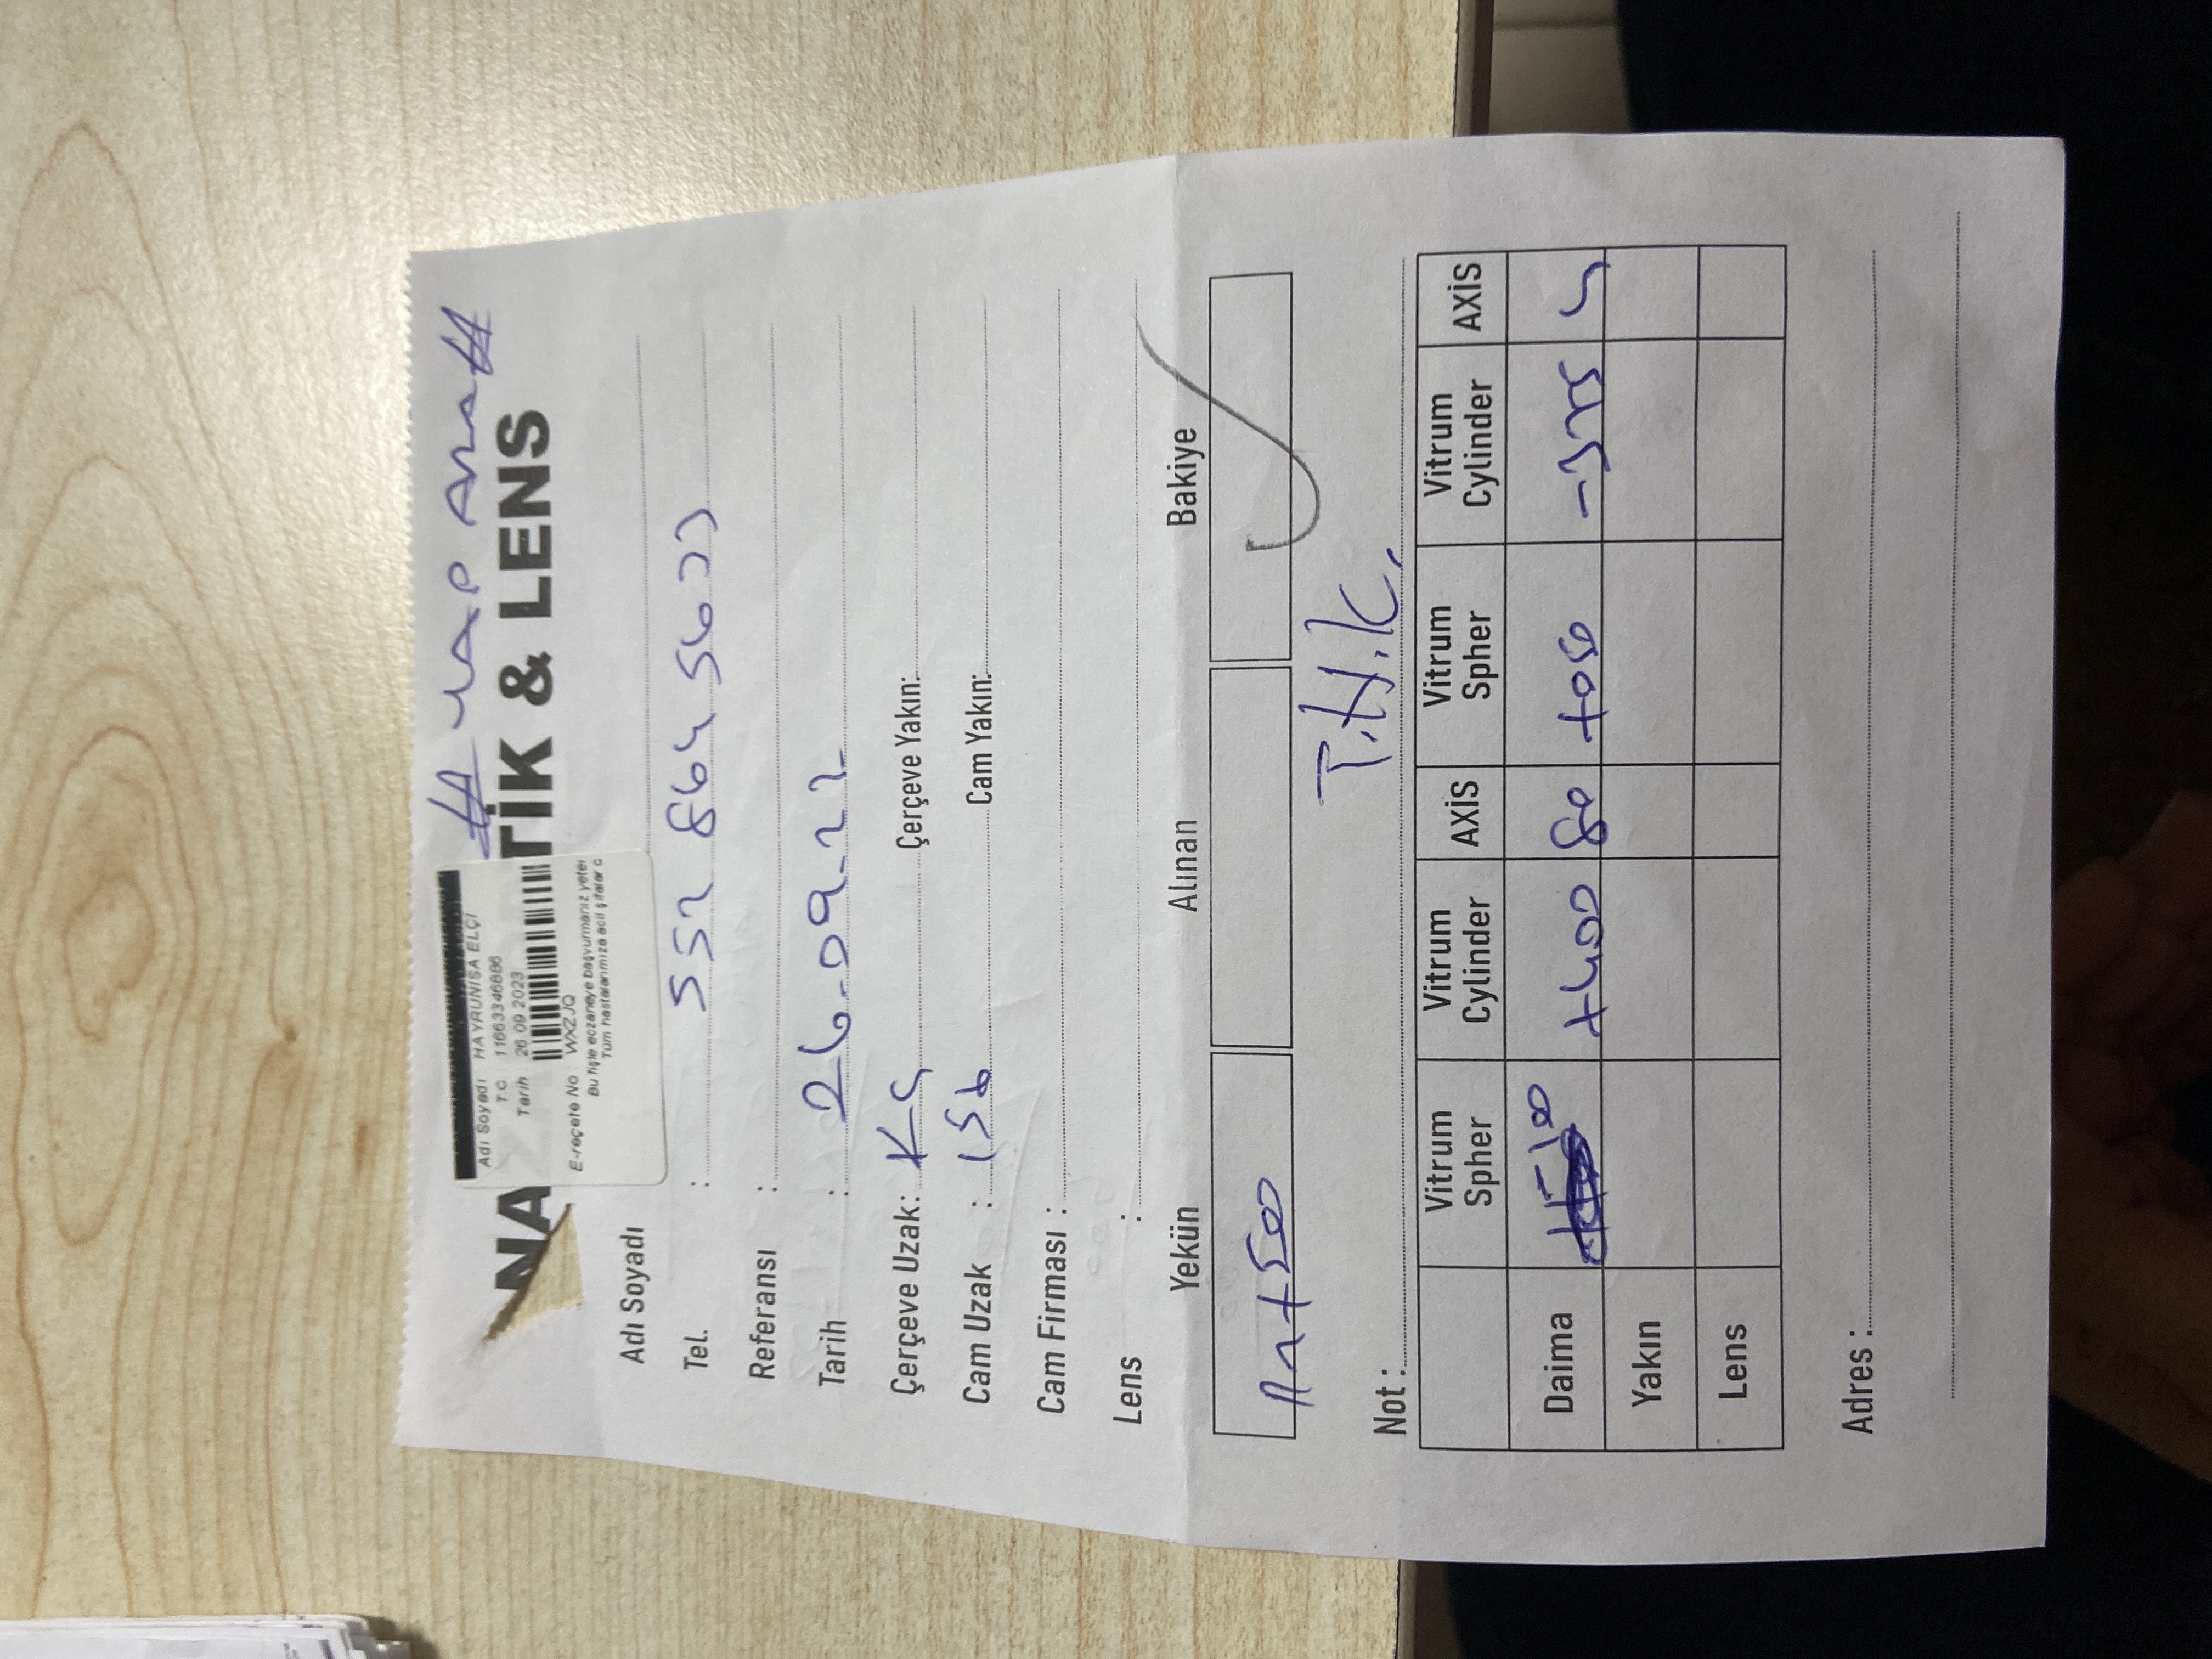 # YAP ARA #
Adı Soyadı : HAYRUNİSA ELÇİ
T.C : 11663346886
Tarih : 26.09.2023
E-reçete No : WXZJQ
Bu fişle eczaneye başvurmanız yeter
Tüm hastalarımıza acil şifalar
NA TİK & LENS
Adı Soyadı
Tel. : 552 864 5633
Referansı :
Tarih : 26.09.22
Çerçeve Uzak: KÇ Çerçeve Yakın:
Cam Uzak : 156 Cam Yakın:
Cam Firması :
Lens :
Yekün Alınan Bakiye
+500
T.H.K.
Not :
Vitrum Spher Vitrum Cylinder AXİS Vitrum Spher Vitrum Cylinder AXİS
Daima -100 +400 80 +050 -375 5
Yakın
Lens
Adres :